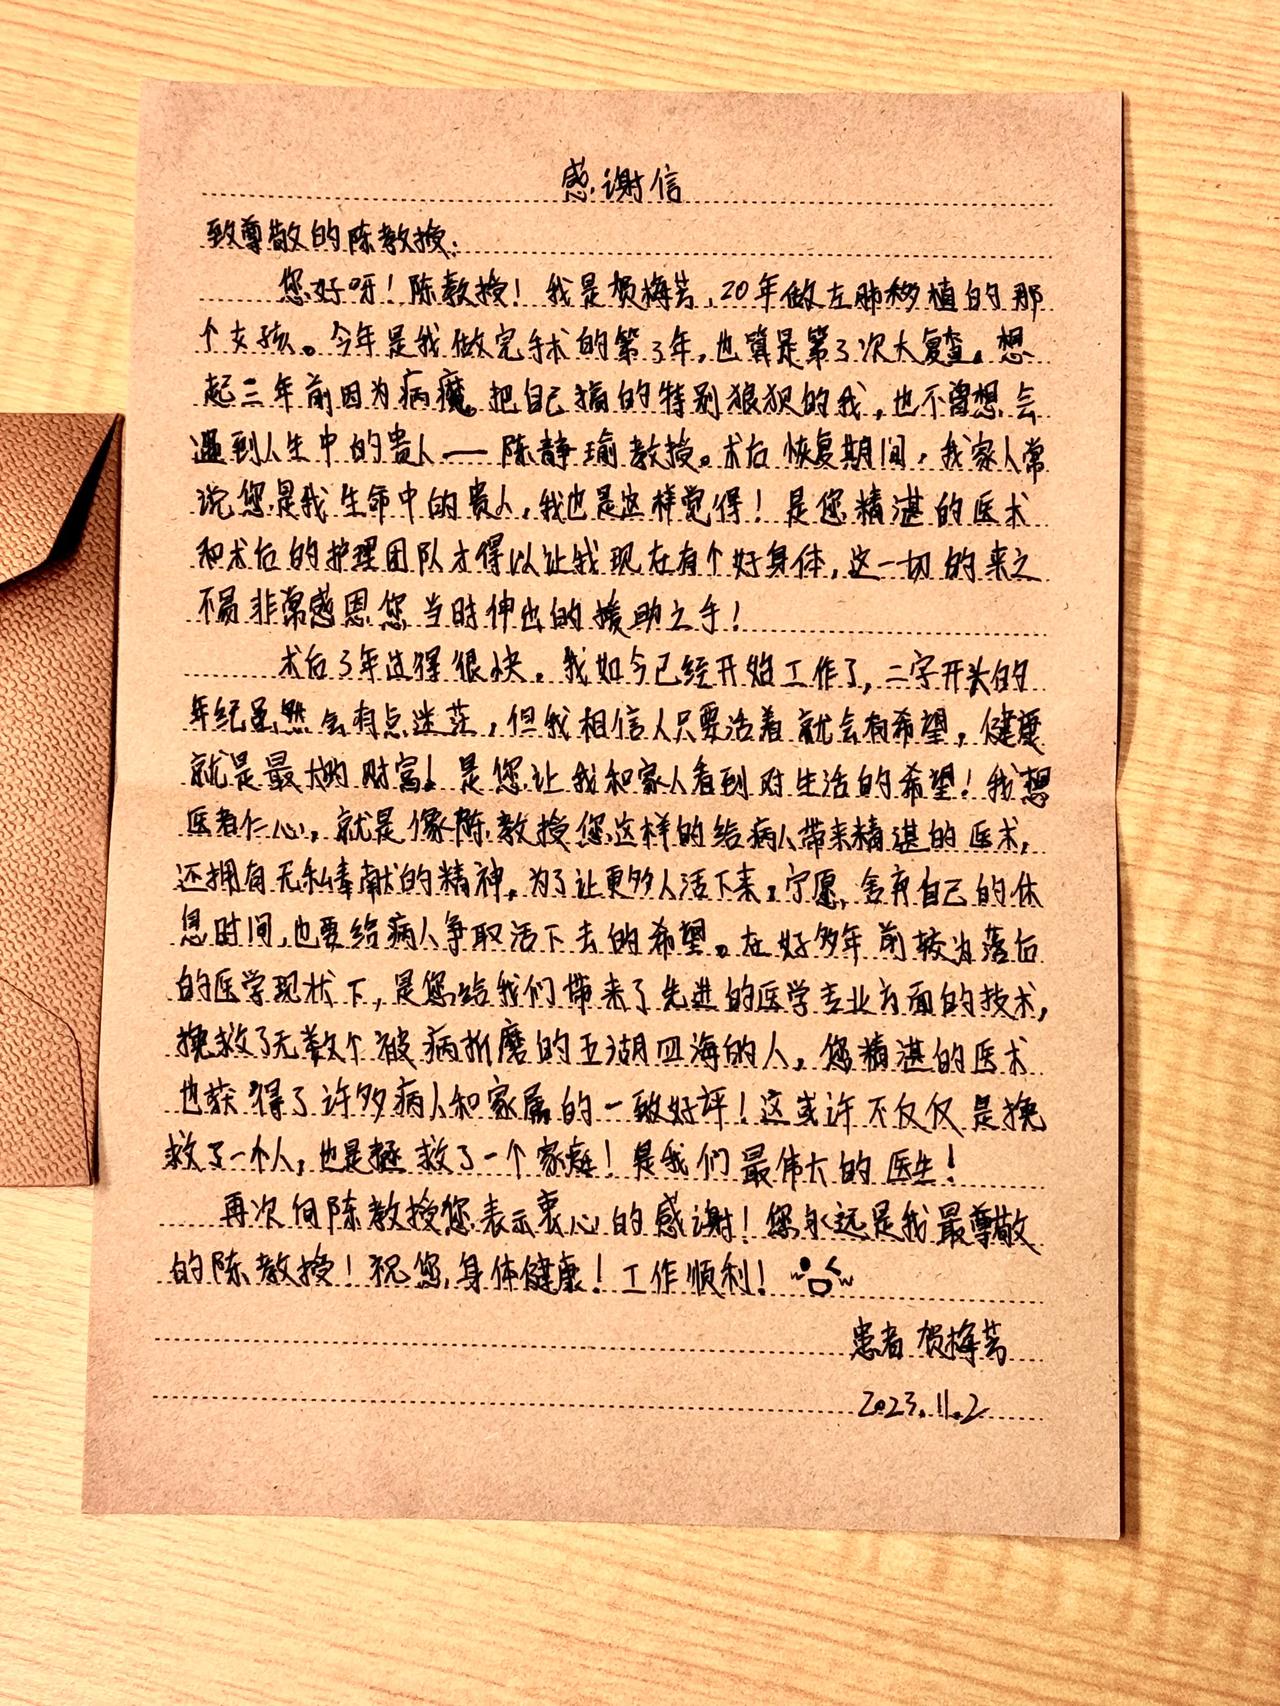 感谢信
致尊敬的陈教授:
您好呀！陈教授！我是贺梅芳,20年做左肺移植的那
个女孩。今年是我做完手术的第3年,也算是第3次大复查。想
起三年前因为病魔。把自己搞的特别狼狈的我,也不曾想会
遇到人生中的贵人——陈静瑜教授。术后恢复期间,我家人常
说您是我生命中的贵人,我也是这样觉得！是您精湛的医术
和术后的护理团队才得以让我现在有个好身体,这一切的来之
不易非常感恩您当时伸出的援助之手！
术后3年过得很快。我如今已经开始工作了,二字开头的
年纪虽然会有点迷茫,但我相信人只要活着就会有希望,健康
就是最大的财富！是您让我和家人看到对生活的希望！我想
医者仁心,就是像陈教授您这样的给病人带来精湛的医术,
还拥有无私奉献的精神。为了让更多人活下来,宁愿,舍弃自己的休
息时间,也要给病人争取活下去的希望。在好多年前较为落后
的医学现状下,是您给我们带来了先进的医学专业方面的技术,
挽救了无数个被病折磨的五湖四海的人,您精湛的医术
也获得了许多病人和家属的一致好评！这或许不仅仅是挽
救了一个人,也是拯救了一个家庭！是我们最伟大的医生！
再次向陈教授您表示衷心的感谢！您永远是我最尊敬
的陈教授！祝您,身体健康！工作顺利！
患者 贺梅芳
2023.11.2